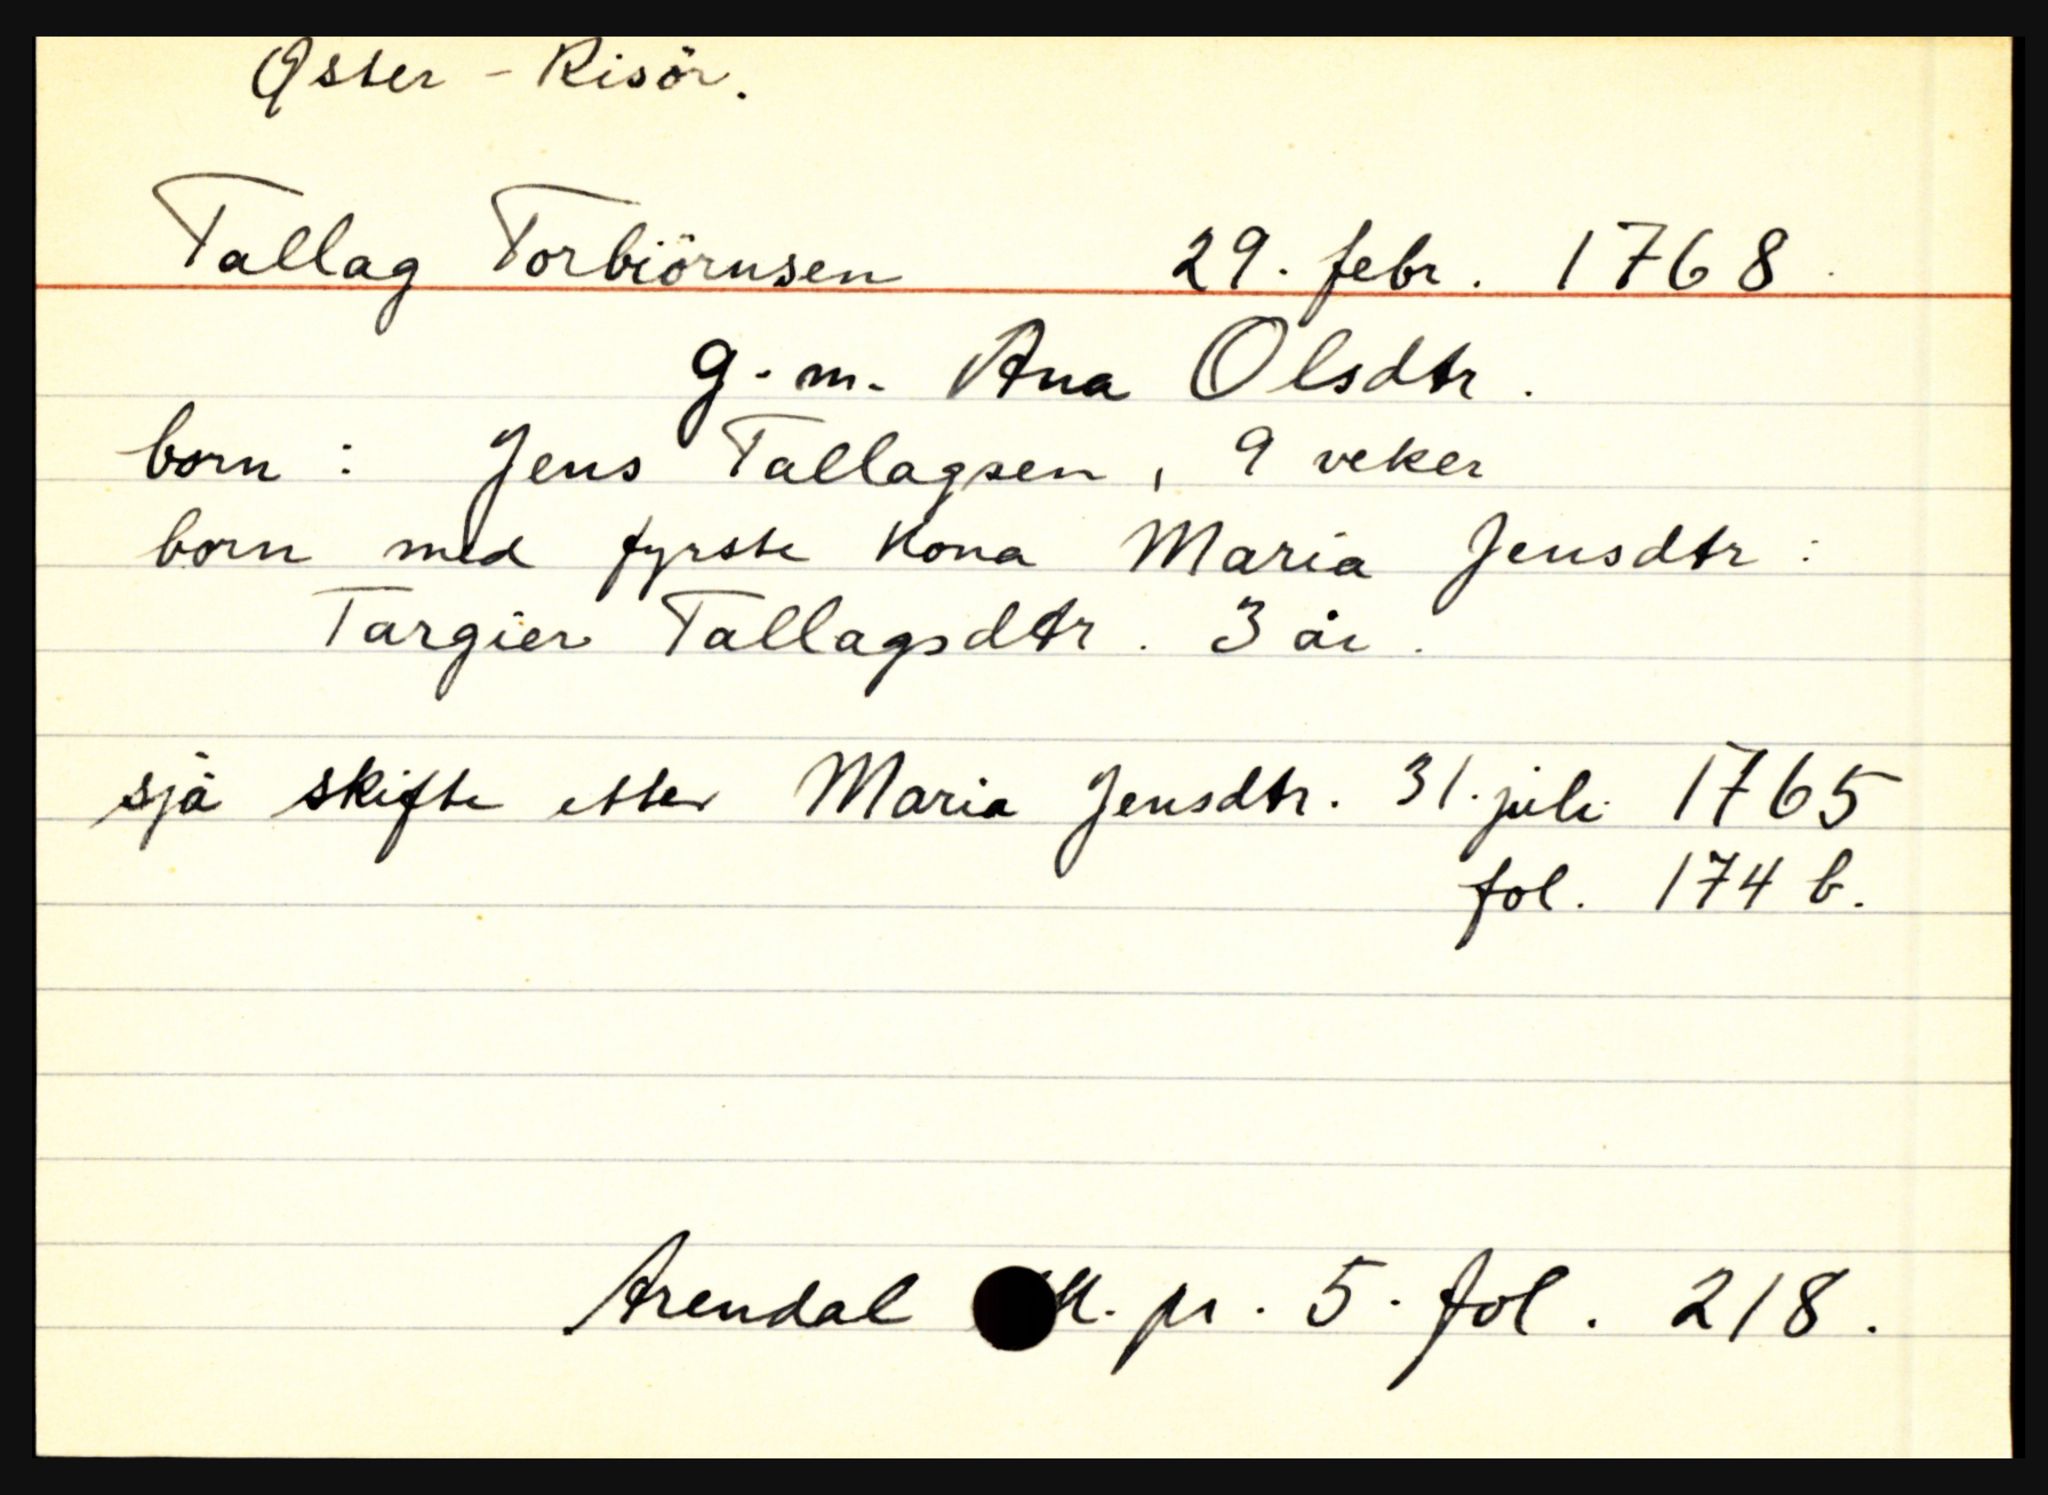 Øster - Risör.
Tallag Torbiörnsen 29. febr. 1768.
g. m. Ana Olsdtr.
born : Jens Tallagsen, 9 veker
born med fyrste kona Maria Jensdtr :
Targier Tallagsdtr. 3 år.
sjå skifte etter Maria Jensdtr. 31. juli 1765
fol. 174 b.
Arendal pr. 5. fol. 218.